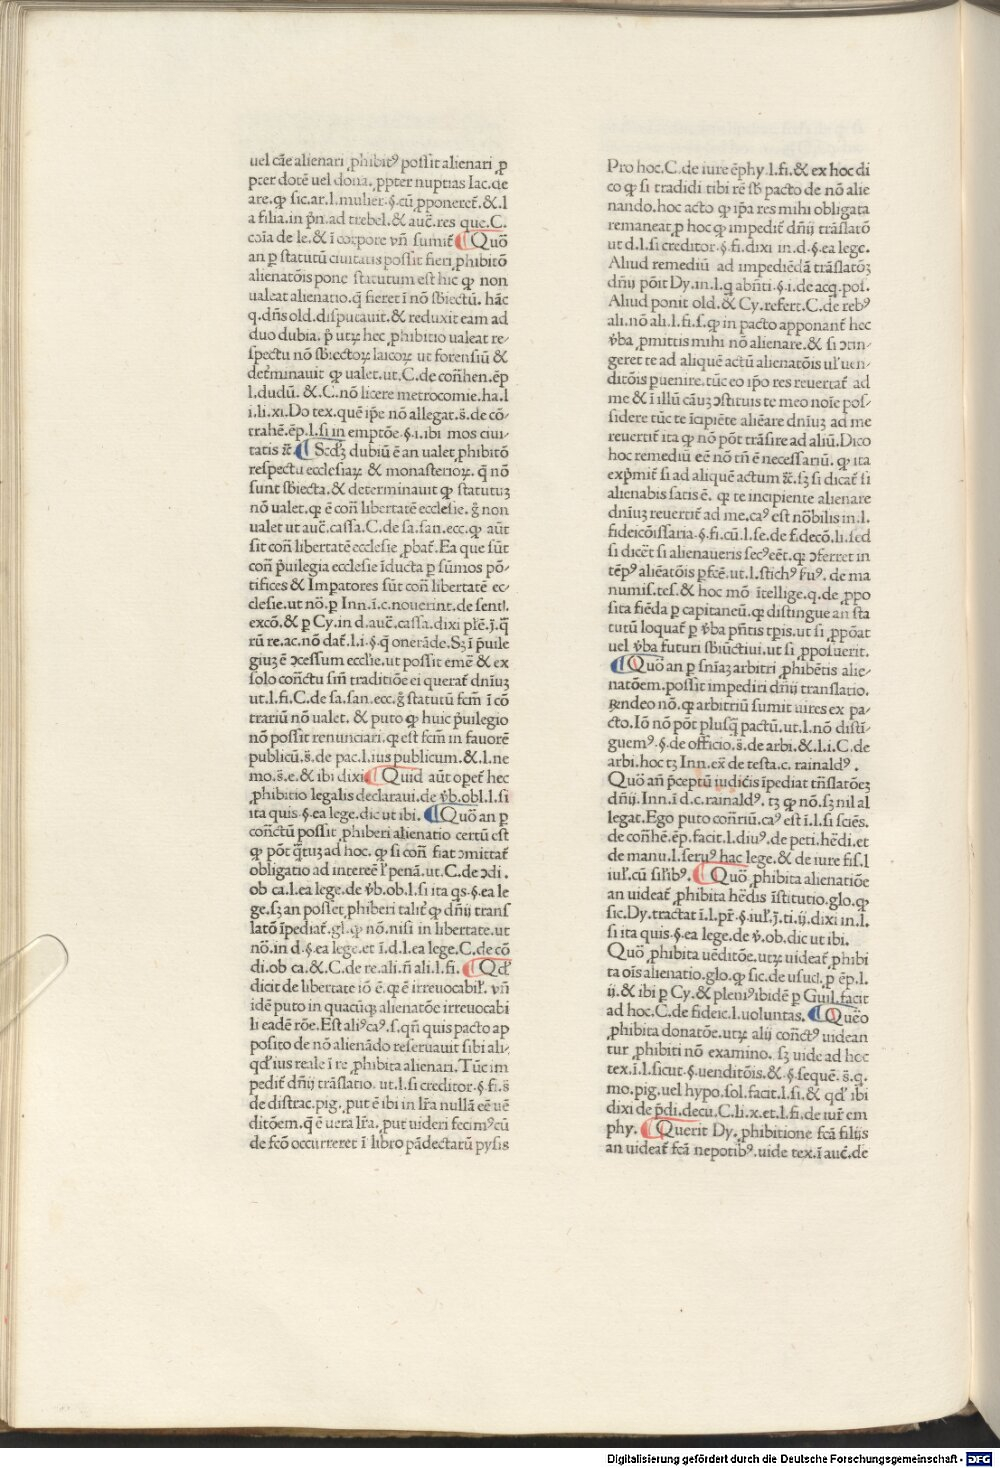 uel cāe alienari ꝓhibitꝰ possit alienari ꝓ
pter dotē uel dona. ꝓpter nuptias Iac. de
are. ꝙ sic. ar. l. mulier. §. cū ꝓponeret̃. & .l
a filia. in p̄n. ad trebel. & auc̄. res que. C.
cōia de le. & ī corpore vn̄ sumit̃ Quō
an ꝑ statutū ciuitatis possit fieri ꝓhibitō
alienatōis pone statutum est hic ꝙ non
ualeat alienatio. q̄ fieret ī nō sb̄iectū. hāc
q. dn̄s old. disputauit. & reduxit eam ad
duo dubia. p̄ utꝝ hec ꝓhibitio ualeat re-
spectu nō sb̄iectoꝝ laicoꝝ ut forensiū &
det̃minauit ꝙ ualet. ut. C. de con̄hen. ēp
l. dudū. & .C. nō licere metrocomie. ha. l
i. li. xi. Do tex. quē ip̄e nō allegat. s̄. de cō-
trahē. ēp. l. si in emptōe. §. i. ibi mos ciui-
tatis &̄. Scd̄ꝫ dubiū ē an ualet ꝓhibitō
respectu ecclesiaꝝ & monasterioꝝ. q̄ nō
sunt sb̄iecta. & determinauit ꝙ statutuꝫ
nō ualet. ꝙ ē con̄ libertatē ecclesie. g̊ non
ualet ut auc̄. cassa. C. de sa. san. ecc. ꝙ aūt
sit con̄ libertatē ecclesie ꝓbat̃. Ea que sūt
con̄ p̄uilegia ecclesie īducta ꝑ sūmos pō-
tifices & Impatores sūt con̄ libertatē ec-
clesie. ut nō. ꝑ Inn. ī. c. nouerint. de sentl.
excō. & ꝑ Cy. in d. auc̄. cassa. dixi pl̄e. j. q̄
rū re. ac. nō dat̃. l. i. §. q̄ onerāde. Sꝫ ī p̄uile
giuꝫ ē ɔcessum ecclīe. ut possit emē & ex
solo con̄ctu sin̄ traditiōe ei querat̃ dn̄iuꝫ
ut. l. fi. C. de sa. san. ecc. g̊ statutū fc̄m ī cō
trariū nō ualet. & puto ꝙ huic p̄uilegio
nō possit renunciari. ꝙ est fc̄m in fauorē
publicū. s̄. de pac. l. ius publicum. & .l. ne
mo. s̄. e. & ibi dixi. Quid aūt opet̃ hec
ꝓhibitio legalis declaraui. de v̄b. obl. l. si
ita quis. §. ea lege. dic ut ibi. Quō an ꝑ
con̄ctū possit ꝓhiberi alienatio certū est
ꝙ pōt q̄tuꝫ ad hoc. ꝙ si con̄ fiat ɔmittat̃
obligatio ad intereē l̄ penā. ut. C. de ɔdi.
ob ca. l. ea lege. de v̄b. ob. l. si ita qs. §. ea le
ge. sꝫ an posset ꝓhiberi talit̃ ꝙ dn̄ij transl
latō īpediat̃. gl. ꝙ nō. nisi in libertate. ut
nō. in d. §. ea lege. et ī. d. l. ea lege. C. de cō
di. ob ca. & .C. de re. ali. n̄ ali. l. fi. Qd̄
dicit de libertate iō ē. ꝙ ē irreuocabil̄. vn̄
idē puto in quacūqꝫ alienatōe irreuocabi
li eadē rōe. Est aliꝰ caꝰ. s. qn̄ quis pacto ap
posito de nō alienādo reseruauit sibi ali-
qd̄ ius reale ī re ꝓhibita alienari. Tūc im
pedit̃ dn̄ij trāslatio. ut. l. si creditor. §. fi. s̄
de distrac. pig. put ē ibi in lr̄a nullā eē uē
ditōem. q̄ ē uera lr̄a. put uideri fecimꝰ cū
de fcō occurreret ī libro pādectarū pysis
Pro hoc. C. de iure ēphy. l. fi. & ex hoc di
co ꝙ si tradidi tibi rē sb̄ pacto de nō alie
nando. hoc acto ꝙ ip̄a res mihi obligata
remaneat. ꝑ hoc ꝙ impedit̃ dn̄ij trāslatō
ut d. l. si creditor. §. fi. dixi in. d. §. ea lege.
Aliud remediū ad impediēdā trāslatōꝫ
dn̄ij pōit Dy. in. l. q̄ abn̄ti. §. i. de acq. pos.
Aliud ponit old. & Cy. refert. C. de rebꝰ
ali. nō ali. l. fi. s. ꝙ in pacto apponant̃ hec
v̄ba ꝓmittis mihi nō alienare. & si ɔtin-
geret te ad aliquē actū alienatōis ul̄ uen-
ditōis ꝑuenire. tūc eo ip̄o res reuertat̃ ad
me & ī illū cāuꝫ ɔstituis te meo noīe pos-
sidere tūc te īcipiēte aliēare dn̄iuꝫ ad me
reuertit̃ ita ꝙ nō pōt trāsire ad aliū. Dico
hoc remediū eē nō tn̄ ē necessariū. ꝙ ita
exp̄mit̃ si ad aliquē actum &̄. sꝫ si dicat̃ si
alienabis satis ē. ꝙ te incipiente alienare
dn̄iuꝫ reuertit̃ ad me. caꝰ est nōbilis in. l.
fideicōissaria. §. fi. cū. l. se. de f. decō. li. sed
si dicēt si alienaueris secꝰ eēt. qꝫ ɔferret in
tēpꝰ aliēatōis ꝑfcē. ut. l. stichꝰ fuꝰ. de ma
numis. tes. & hoc mō ītellige. q. de ꝓpo
sita fiēda ꝑ capitaneū. ꝙ distingue an sta
tutū loquat̃ ꝑ v̄ba pn̄tis tꝑis. ut si ꝓpōat
uel v̄ba futuri sb̄iūctiui. ut si ꝓposuerit.
Quō an ꝑ sn̄iaꝫ arbitri ꝓhibētis alie-
natōem. possit impediri dn̄ij translatio.
Rn̄deo nō. ꝙ arbitriū sumit uires ex pa-
cto. Iō nō pōt plusq̄ pactū. ut. l. nō distī-
guemꝰ. §. de officio. s̄. de arbi. & .l. i. C. de
arbi. hoc tꝫ Inn. ex̄ de testa. c. rainaldꝰ.
Quō an̄ p̄ceptū iudicis īpediat tn̄slatōeꝫ
dn̄ij. Inn. ī d. c. rainaldꝰ. tꝫ ꝙ nō. sꝫ nil al
legat. Ego puto con̄riū. caꝰ est ī. l. si sciēs.
de con̄hē. ēp. facit. l. diuꝰ. de peti. hēdi. et
de manu. l. seruꝰ hac lege. & de iure fis. l
iul̄. cū sil̄ibꝰ. Quō ꝓhibita alienatiōe
an uideat̃ ꝓhibita hēdis īstitutio. glo. ꝙ
sic. Dy. tractat ī. l. pr̄. §. iul̄. j̄. ti. ij. dixi in. l.
si ita quis. §. ea lege. de v̄. ob. dic ut ibi.
Quō ꝓhibita uēditōe. utꝝ uideat̃ ꝓhibi
ta oīs alienatio. glo. ꝙ sic. de usuci. ꝑ ēp. l.
ij. & ibi ꝑ Cy. & pleniꝰ ibidē ꝑ Guil. facit
ad hoc. C. de fideic. l. uoluntas. Quēo
ꝓhibita donatōe. utꝝ alij con̄ctꝰ uidean
tur ꝓhibiti nō examino. sꝫ uide ad hoc
tex. ī. l. sicut. §. uenditōis. & §. sequē. s̄. q.
mo. pig. uel hypo. sol. facit. l. si. & qd̄ ibi
dixi de p̄di. decu. C. li. x. et. l. fi. de iur̄ em
phy. Querit Dy. ꝓhibitione fcā filijs
an uideat̃ fcā nepotibꝰ. uide tex. ī auc̄. de
Digitalisierung gefördert durch die Deutsche Forschungsgemeinschaft - DFG